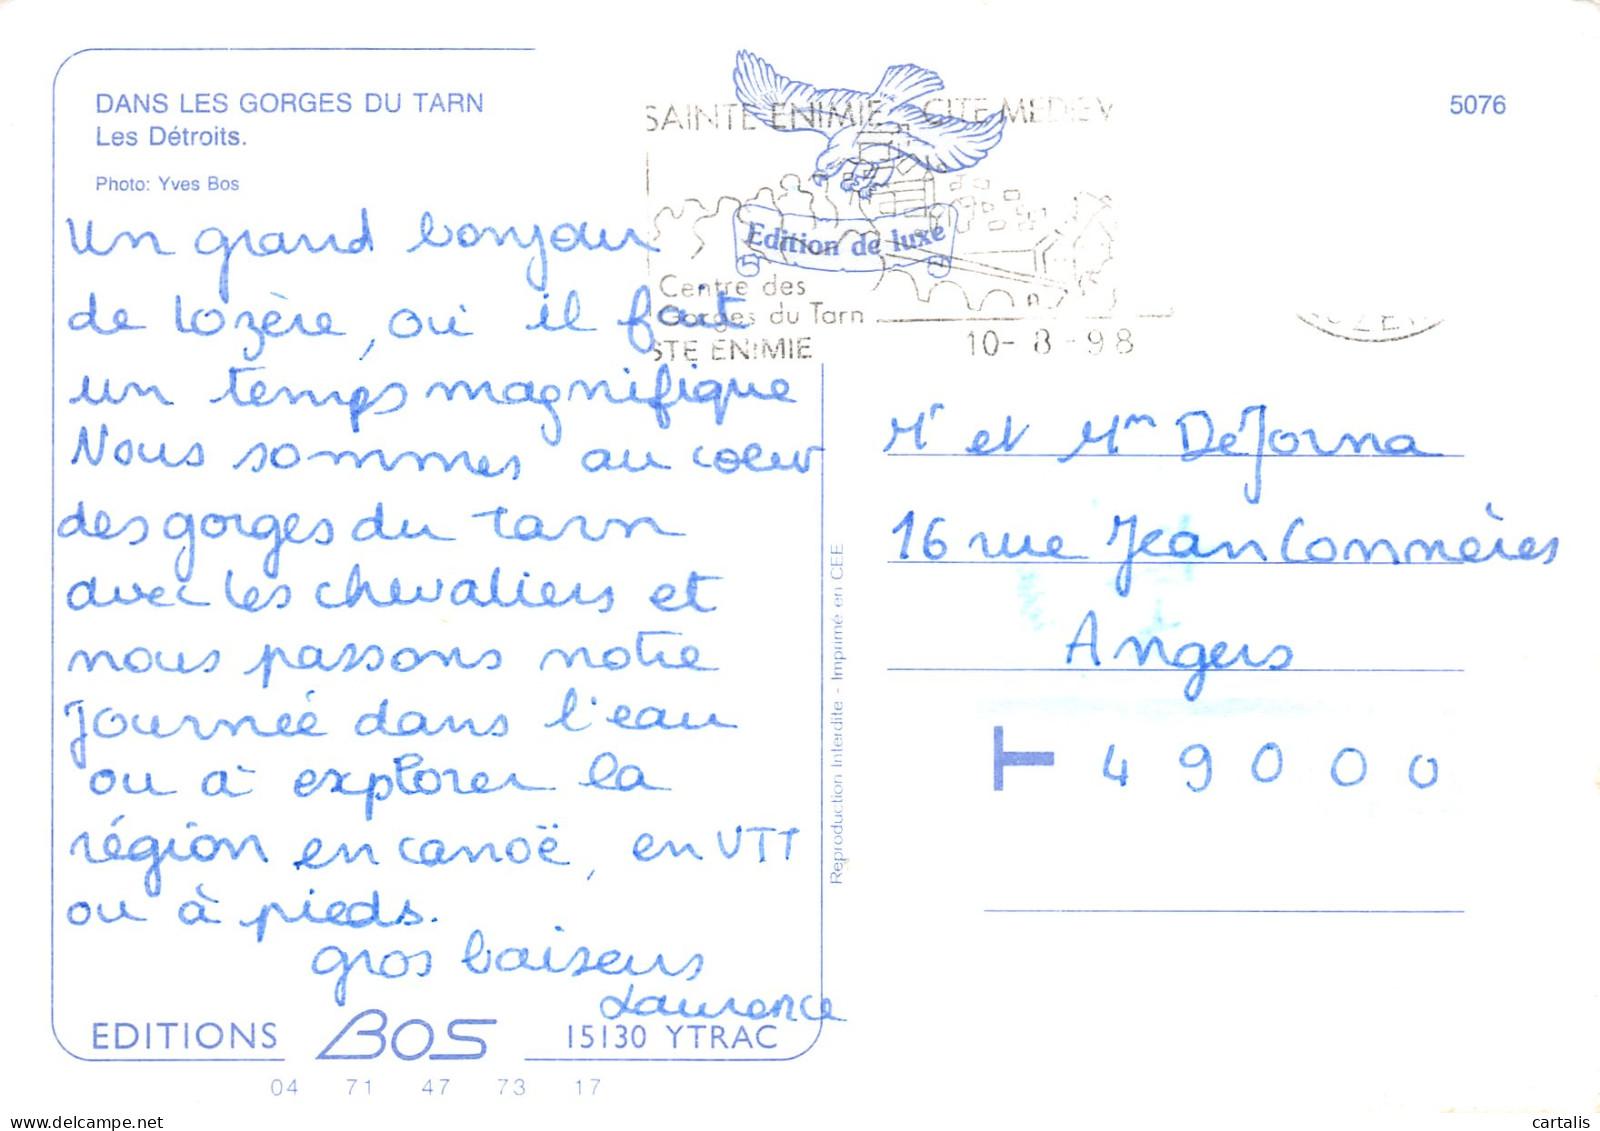 DANS LES GORGES DU TARN
Les Détroits.
Photo: Yves Bos
5076
SAINTE ENIMIE - CITE MEDIEV
Edition de luxe
Centre des
Gorges du Tarn
STE ENIMIE
10-8-98
OZE
Un grand bonjour
de Lozère, où il fait
un temps magnifique
Nous sommes au coeur
des gorges du Tarn
avec les chevaliers et
nous passons notre
journée dans l'eau
ou à explorer la
région en canoë, en VTT
ou à pieds.
gros baisers
Laurence
Mr et Mm DeJorna
16 rue Jean Connères
Angers
T 49000
Reproduction Interdite - Imprimé en CEE
EDITIONS BOS 15130 YTRAC
04 71 47 73 17
cartalis